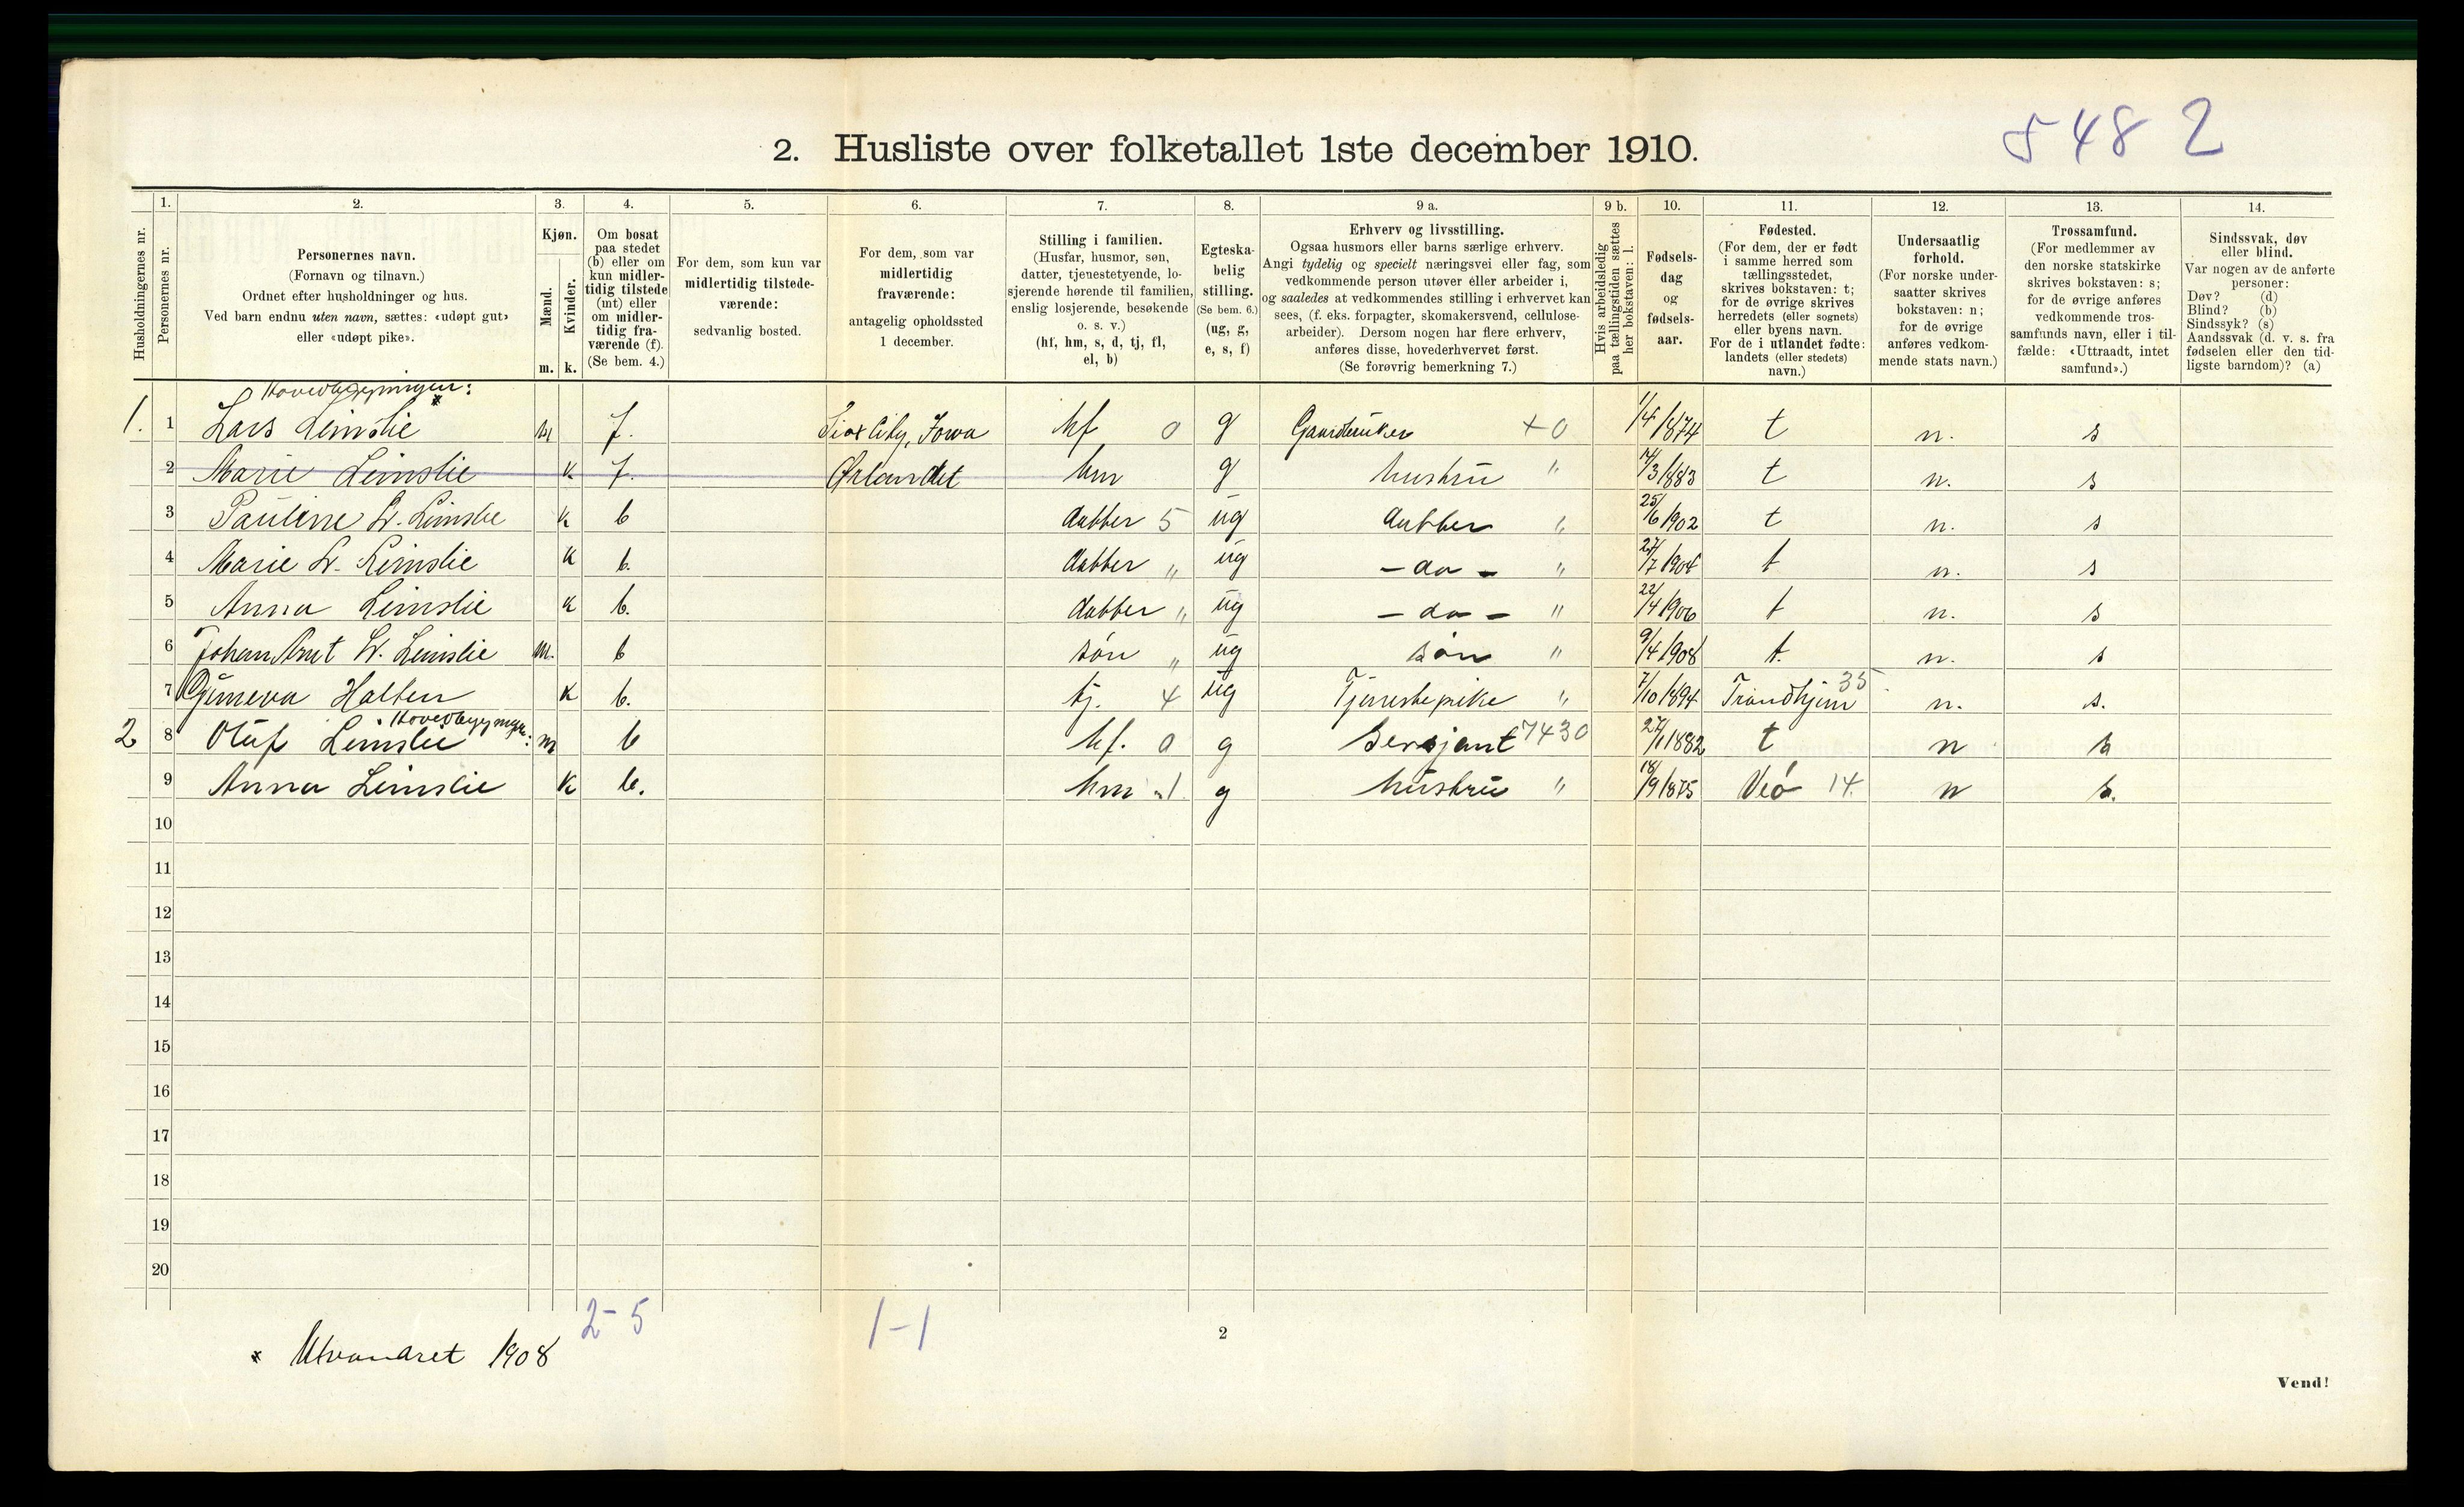 548 2
2. Husliste over folketallet 1ste december 1910.
1. 2. 3. 4. 5. 6. 7. 8. 9 a. 9 b. 10. 11. 12. 13. 14.
Husholdningernes nr.
Personernes nr.
Personernes navn.
(Fornavn og tilnavn.)
Ordnet efter husholdninger og hus.
Ved barn endnu uten navn, sættes: «udøpt gut»
eller «udøpt pike».
Kjøn.
Mænd.
Kvinder.
m. k.
Om bosat
paa stedet
(b) eller om
kun midler-
tidig tilstede
(mt) eller
om midler-
tidig fra-
værende (f).
(Se bem. 4.)
For dem, som kun var
midlertidig tilstede-
værende:
sedvanlig bosted.
For dem, som var
midlertidig
fraværende:
antagelig opholdssted
1 december.
Stilling i familien.
(Husfar, husmor, søn,
datter, tjenestetyende, lo-
sjerende hørende til familien,
enslig losjerende, besøkende
o. s. v.)
(hf, hm, s, d, tj, fl,
el, b)
Egteska-
belig
stilling.
(Se bem. 6.)
(ug, g,
e, s, f)
Erhverv og livsstilling.
Ogsaa husmors eller barns særlige erhverv.
Angi tydelig og specielt næringsvei eller fag, som
vedkommende person utøver eller arbeider i,
og saaledes at vedkommendes stilling i erhvervet kan
sees, (f. eks. forpagter, skomakersvend, cellulose-
arbeider). Dersom nogen har flere erhverv,
anføres disse, hovederhvervet først.
(Se forøvrig bemerkning 7.)
Hvis arbeidsledig
paa tællingstiden sættes
her bokstaven: l.
Fødsels-
dag
og
fødsels-
aar.
Fødested.
(For dem, der er født
i samme herred som
tællingsstedet,
skrives bokstaven: t;
for de øvrige skrives
herredets (eller sognets)
eller byens navn.
For de i utlandet fødte:
landets (eller stedets)
navn.)
Undersaatlig
forhold.
(For norske under-
saatter skrives
bokstaven: n;
for de øvrige
anføres vedkom-
mende stats navn.)
Trossamfund.
(For medlemmer av
den norske statskirke
skrives bokstaven: s;
for de øvrige anføres
vedkommende tros-
samfunds navn, eller i til-
fælde: «Uttraadt, intet
samfund».)
Sindssvak, døv
eller blind.
Var nogen av de anførte
personer:
Døv? (d)
Blind? (b)
Sindssyk? (s)
Aandssvak (d. v. s. fra
fødselen eller den tid-
ligste barndom)? (a)
Hovedbygningen:
1. 1 Lars Leinslie * m f. Siox City, Iowa hf 0 g Gaardbruker +0 1/4 1874 t n. s
2 Marie Leinslie k f. Ørlandet hm g hustru " 14/3 1883 t n. s
3 Pauline L. Leinslie k b datter 5 ug datter " 25/6 1902 t n. s
4 Marie L. Leinslie k b. datter " ug - do - " 27/7 1904 t n. s
5 Anna Leinslie k b. datter " ug - do - " 22/4 1906 t n. s
6 Johan Arnt L. Leinslie m. b søn " ug søn " 9/4 1908 t. n. s
7 Halten k b. tj. 4 ug Tjenestepike " 7/10 1894 Trondhjem 35 n. s.
Hovedbygningen:
2 8 Oluf Leinslie m b hf. 0 g Sersjant 7430 27/1 1882 t n s
9 Anna Leinslie k b. hm "1 g hustru " 18/9 1875 Veø 14. n s.
10
11
12
13
14
15
16
17
18
19
20
2-5 1-1
2
* Utvandret 1908
Vend!